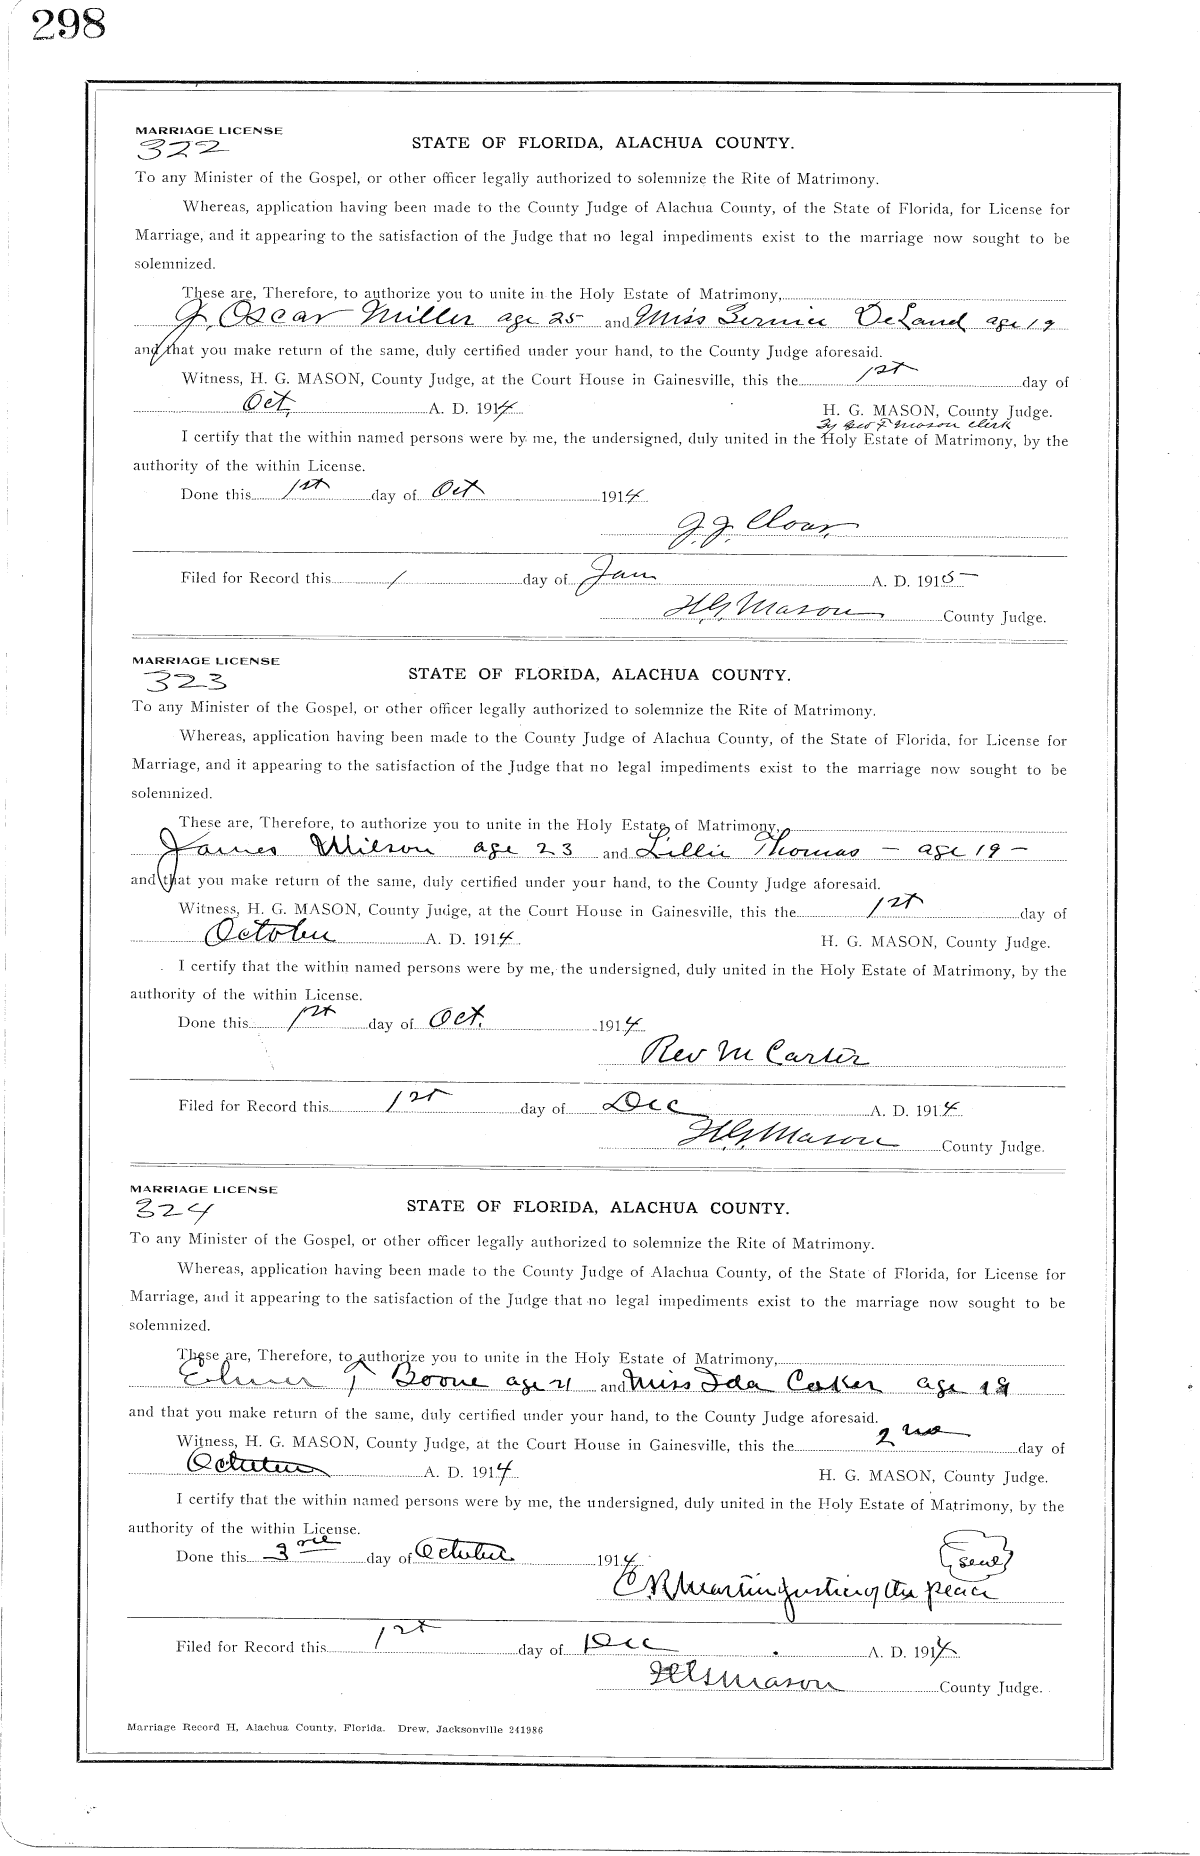 298
MARRIAGE LICENSE
322
STATE OF FLORIDA, ALACHUA COUNTY.
To any Minister of the Gospel, or other officer legally authorized to solemnize the Rite of Matrimony.
Whereas, application having been made to the County Judge of Alachua County, of the State of Florida, for License for
Marriage, and it appearing to the satisfaction of the Judge that no legal impediments exist to the marriage now sought to be
solemnized.
These are, Therefore, to authorize you to unite in the Holy Estate of Matrimony,
J. Oscar Miller age 25 and Miss Bernice DeLand age 19
and that you make return of the same, duly certified under your hand, to the County Judge aforesaid.
Witness, H. G. MASON, County Judge, at the Court House in Gainesville, this the 1st day of
Oct. A. D. 1914 H. G. MASON, County Judge.
By Geo F Mason Clerk
I certify that the within named persons were by me, the undersigned, duly united in the Holy Estate of Matrimony, by the
authority of the within License.
Done this 1st day of Oct 1914
J. J. Cloar,
Filed for Record this 1 day of Jan A. D. 1915
H.G. Mason County Judge.
MARRIAGE LICENSE
323
STATE OF FLORIDA, ALACHUA COUNTY.
To any Minister of the Gospel, or other officer legally authorized to solemnize the Rite of Matrimony.
Whereas, application having been made to the County Judge of Alachua County, of the State of Florida, for License for
Marriage, and it appearing to the satisfaction of the Judge that no legal impediments exist to the marriage now sought to be
solemnized.
These are, Therefore, to authorize you to unite in the Holy Estate of Matrimony,
James Wilson age 23 and Lillie Thomas - age 19 -
and that you make return of the same, duly certified under your hand, to the County Judge aforesaid.
Witness, H. G. MASON, County Judge, at the Court House in Gainesville, this the 1st day of
October A. D. 1914 H. G. MASON, County Judge.
I certify that the within named persons were by me, the undersigned, duly united in the Holy Estate of Matrimony, by the
authority of the within License.
Done this 1st day of Oct. 1914
Rev M Carter
Filed for Record this 1st day of Dec A. D. 1914
H.G. Mason County Judge.
MARRIAGE LICENSE
324
STATE OF FLORIDA, ALACHUA COUNTY.
To any Minister of the Gospel, or other officer legally authorized to solemnize the Rite of Matrimony.
Whereas, application having been made to the County Judge of Alachua County, of the State of Florida, for License for
Marriage, and it appearing to the satisfaction of the Judge that no legal impediments exist to the marriage now sought to be
solemnized.
These are, Therefore, to authorize you to unite in the Holy Estate of Matrimony,
Elmer T Boone age 21 and Miss Ida Coker age
and that you make return of the same, duly certified under your hand, to the County Judge aforesaid.
Witness, H. G. MASON, County Judge, at the Court House in Gainesville, this the 2nd day of
October A. D. 1914 H. G. MASON, County Judge.
I certify that the within named persons were by me, the undersigned, duly united in the Holy Estate of Matrimony, by the
authority of the within License.
Done this 3rd day of October 1914 seal
Martin Justice of the peace
Filed for Record this 1st day of Dec A. D. 1914
HG Mason County Judge.
Marriage Record H, Alachua County, Florida. Drew, Jacksonville 241986